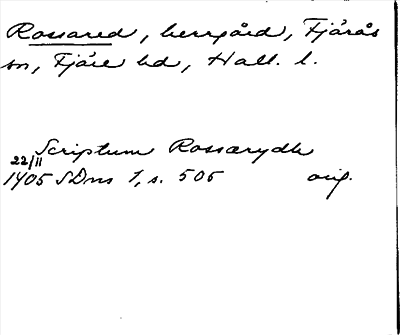 Rossared, herrgård, Fjärås
sn, Fjäre hd, Hall. l.
Scriptum Rossærydh
22/11
1405 SDns 1, s. 506 orig.